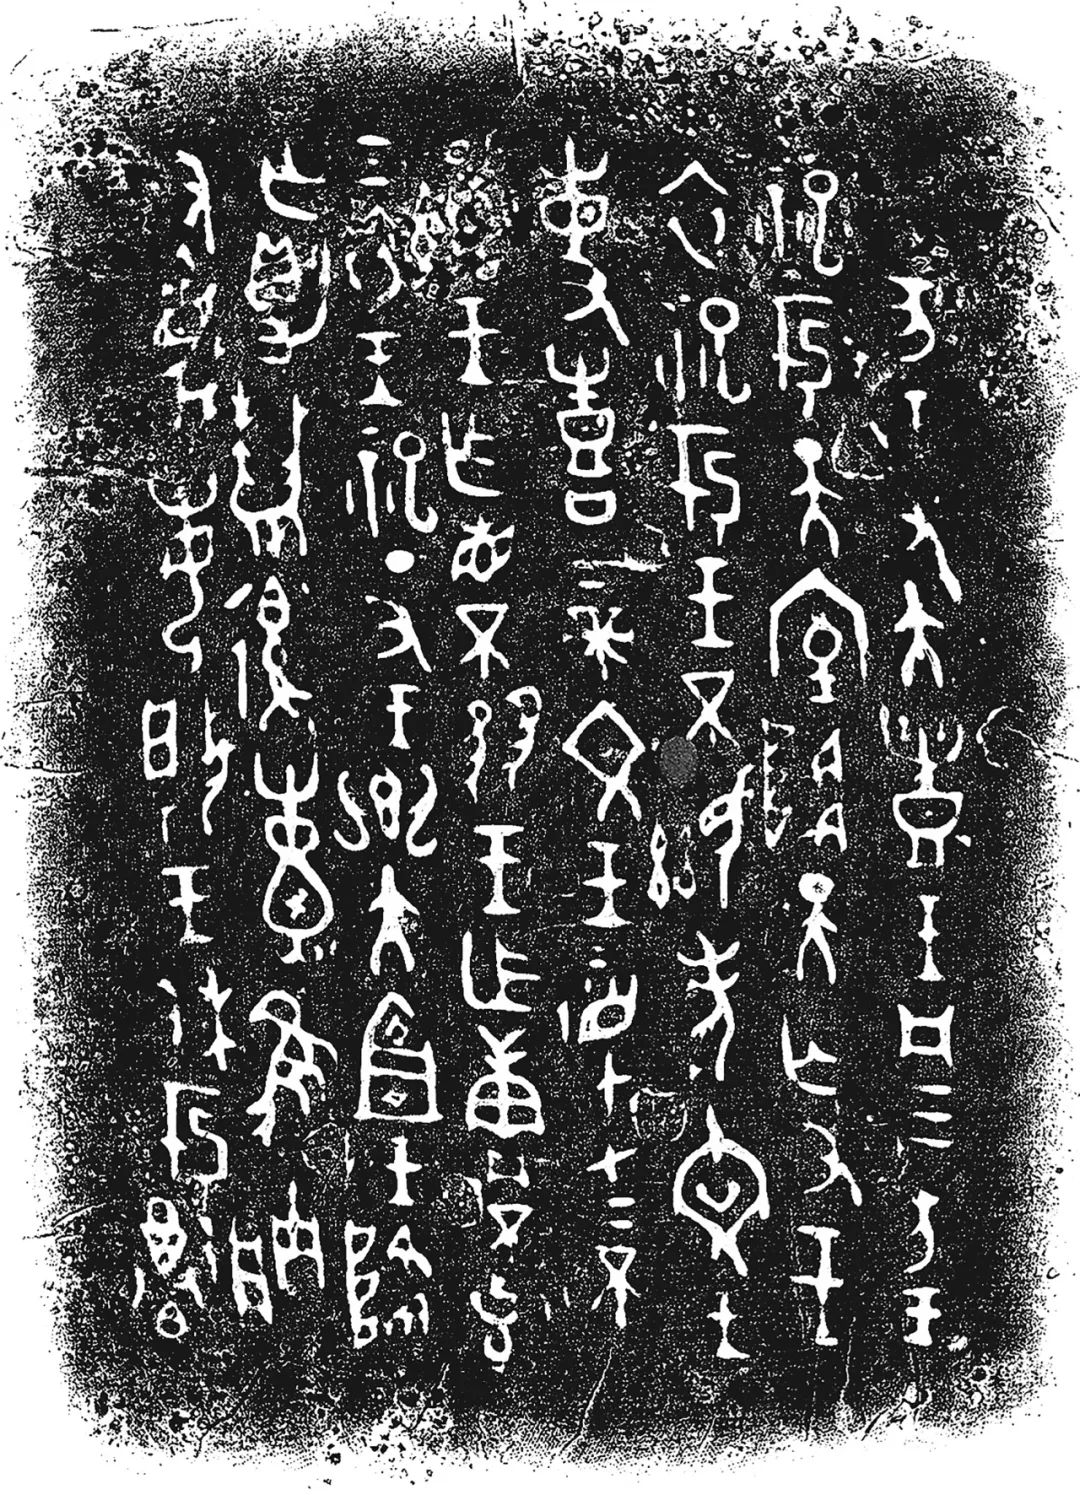 亥王又大豐王凡三方王
祀于天室降天亡又王
衣祀于王不顯考文王
事喜上帝文王監才上不
顯王乍省不𢑑王乍庚不克
三衣王祀丁丑王鄉大宜王降
亡爵復隹朕
又每王休于尊